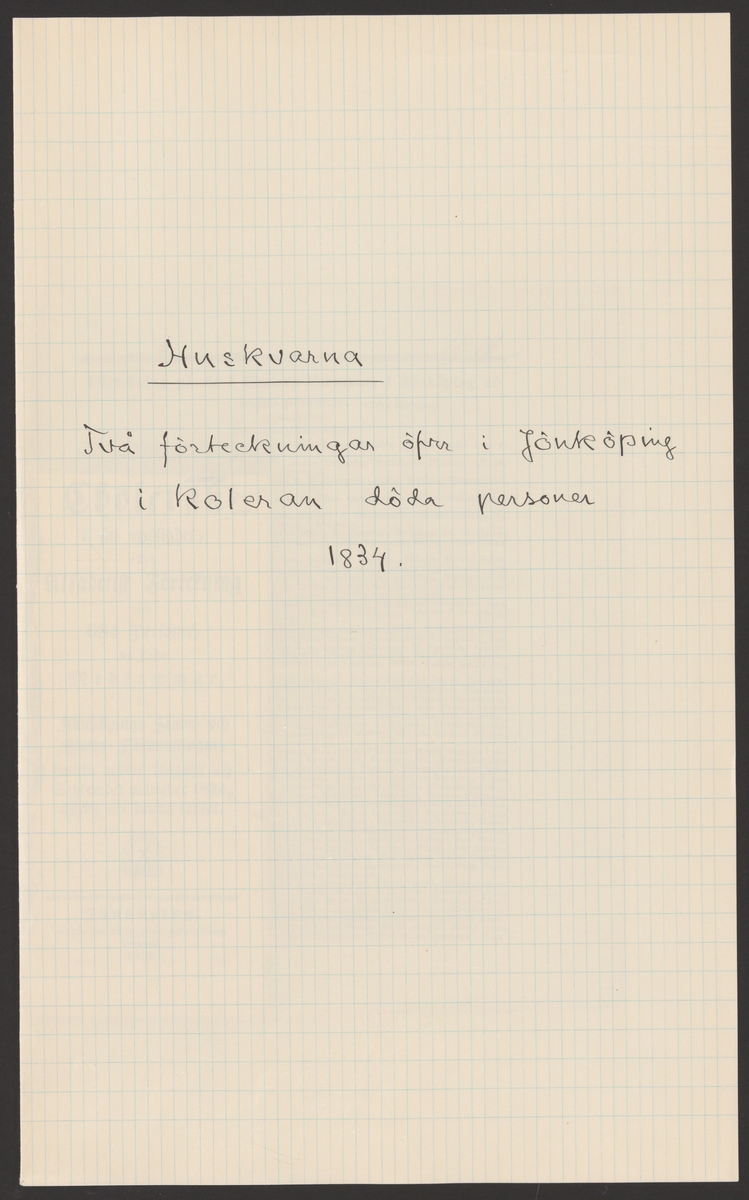 Huskvarna
Två förteckningar öfver i Jönköping
i koleran döda personer
1834.